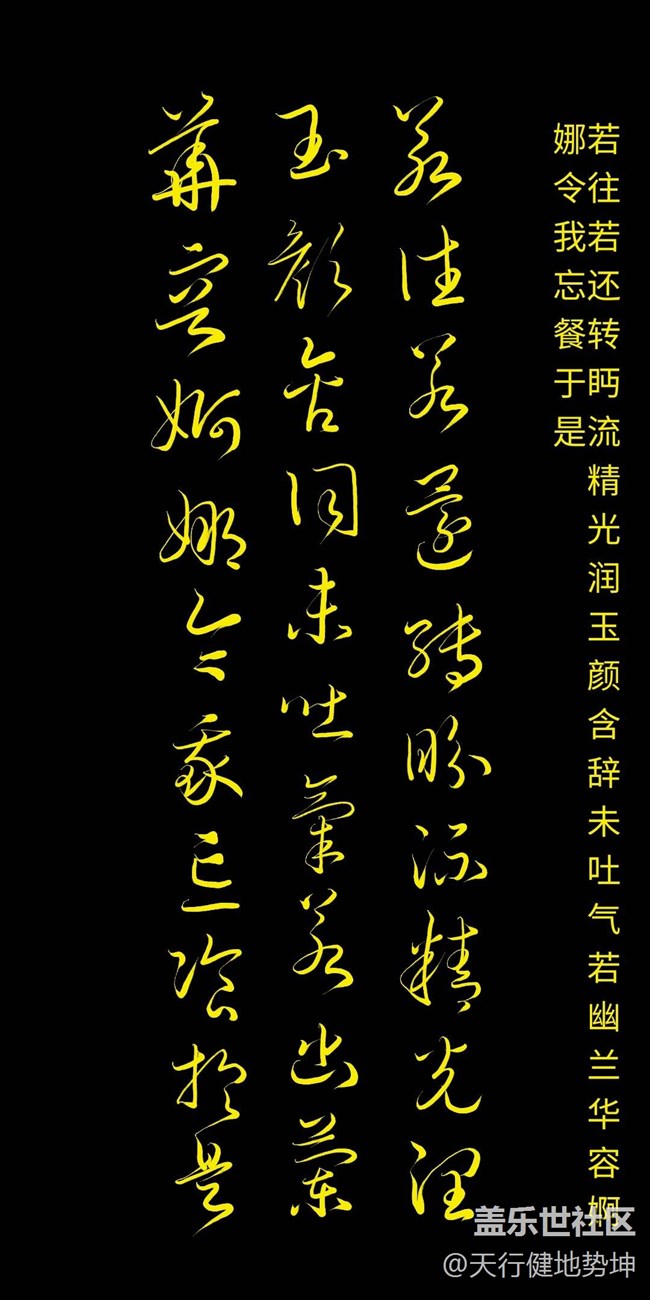 若往若还转眄流精光润玉颜含辞未吐气若幽兰华容婀
娜令我忘餐于是
若往若還轉眄流精光潤
玉顏含詞未吐氣若幽蘭
華容婀娜令我忘飡於是
盖乐世社区
@天行健地势坤